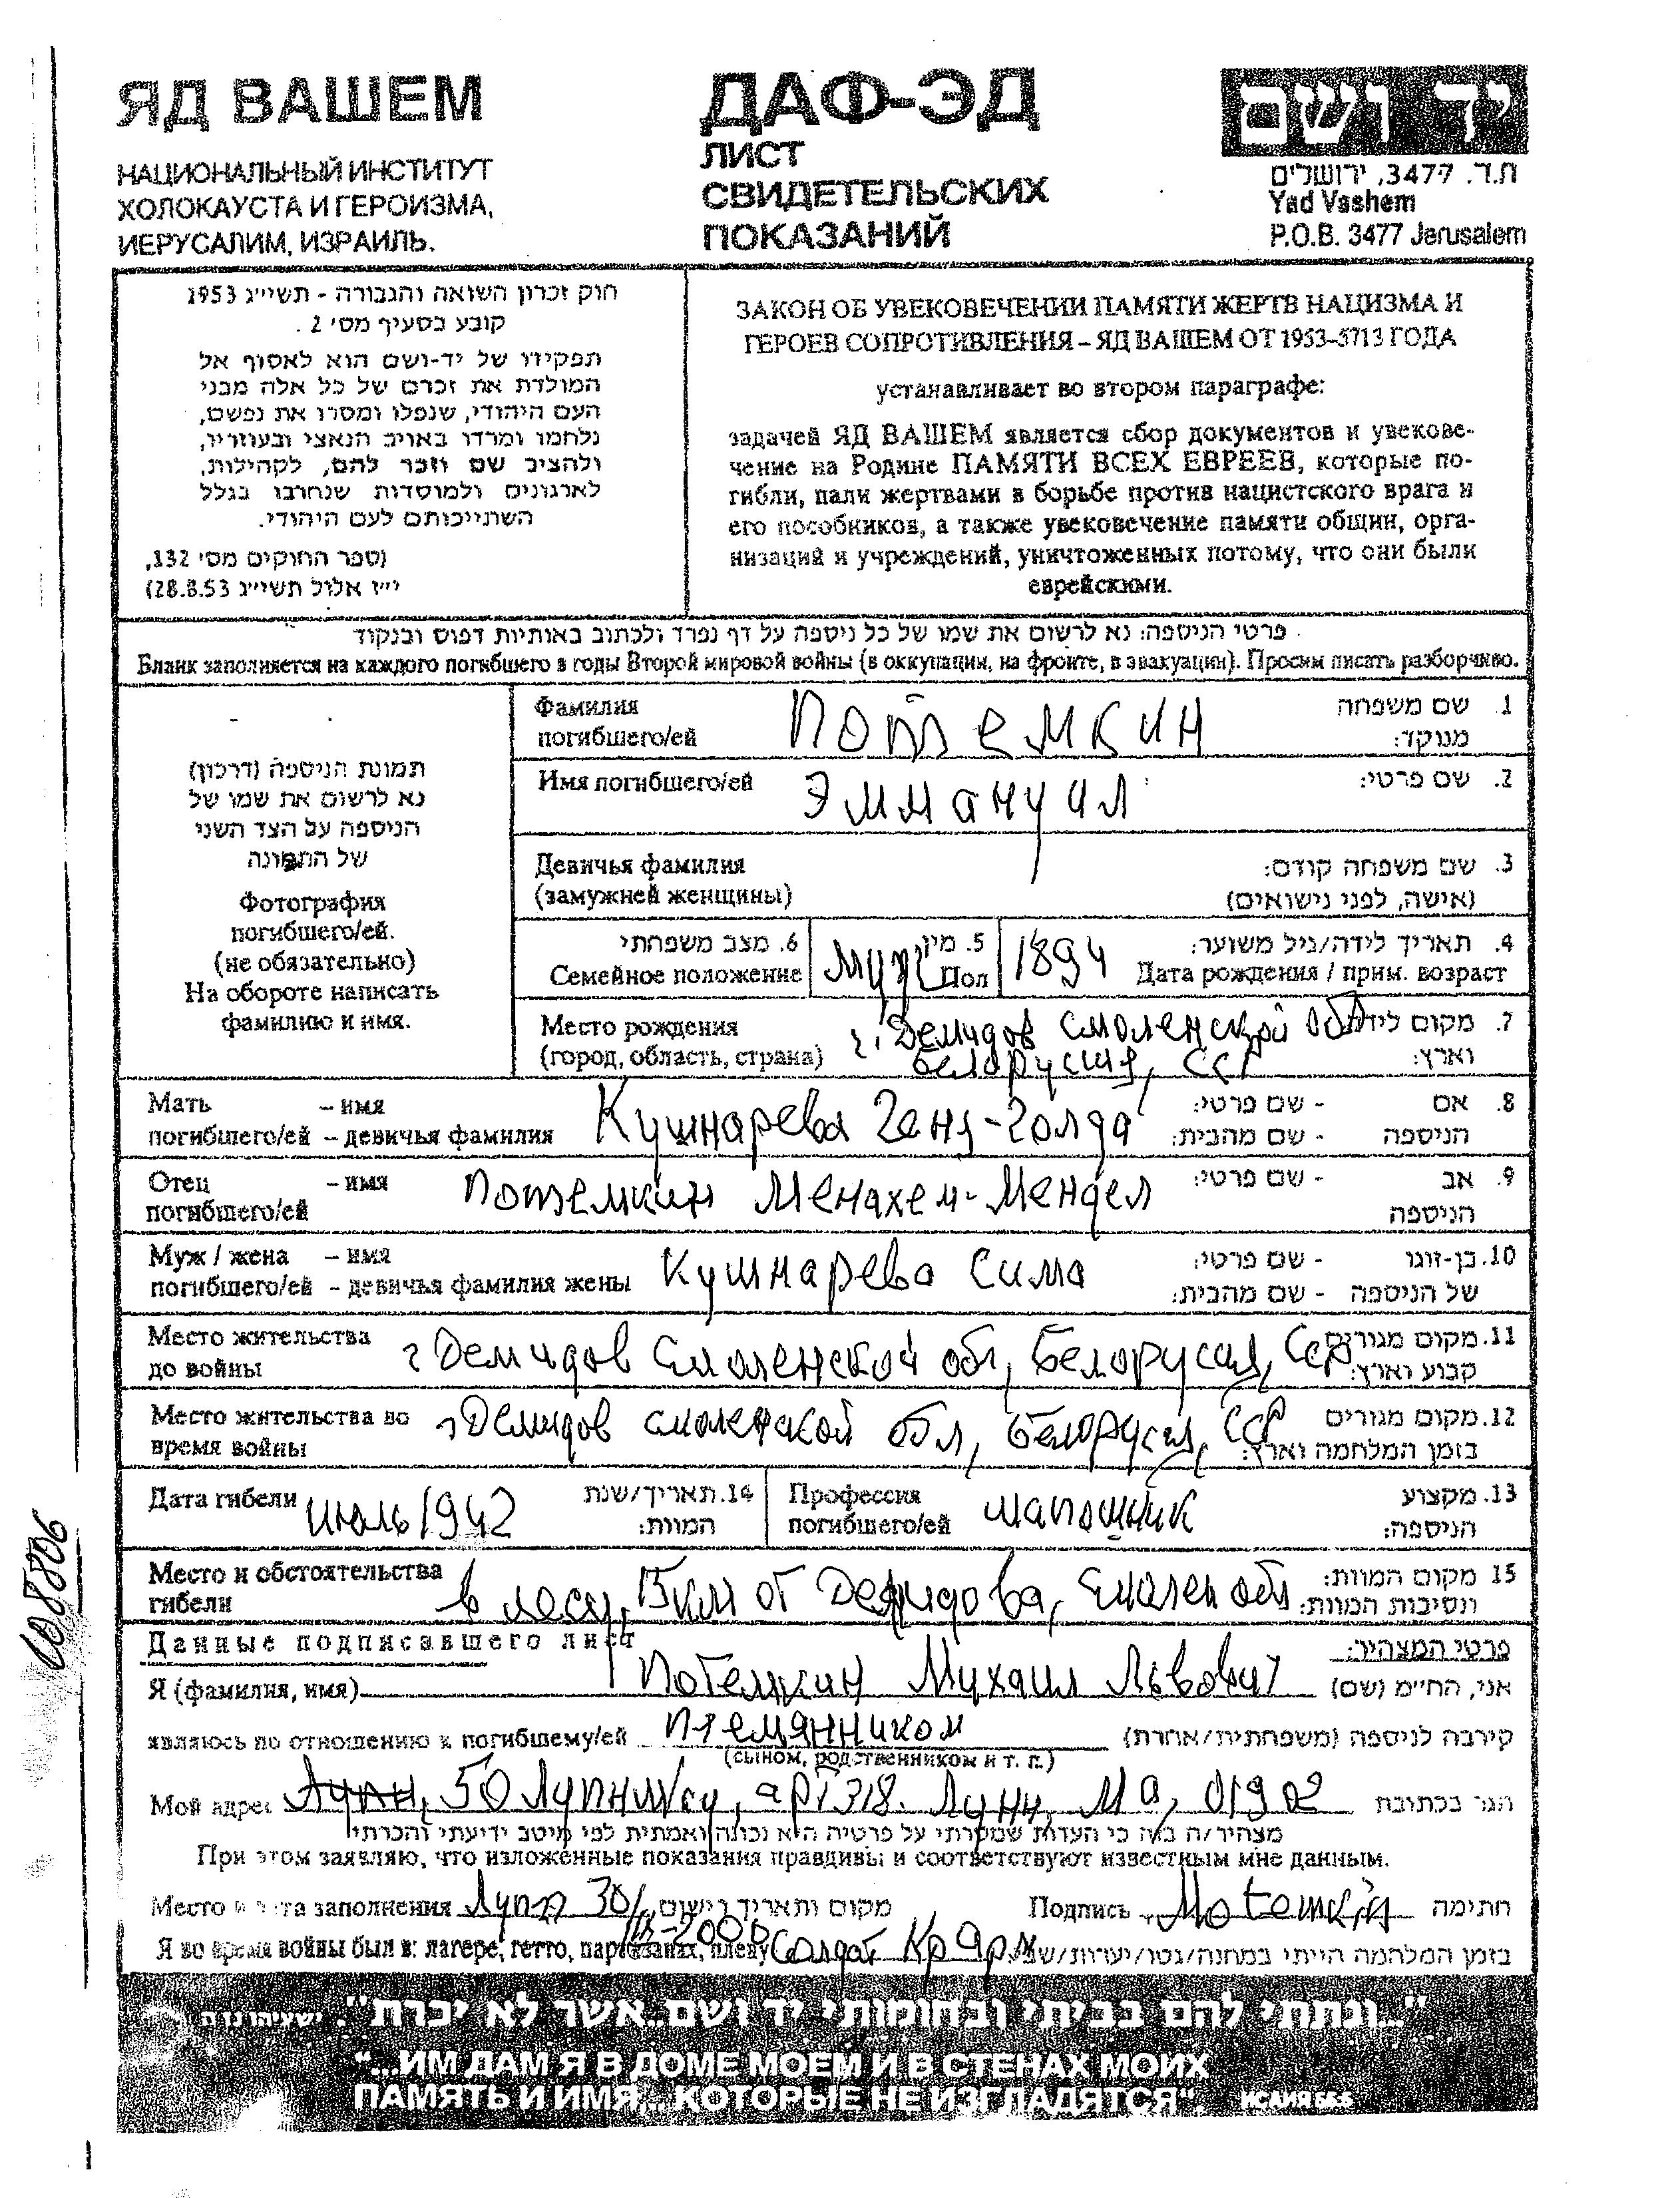 ЯД ВАШЕМ
НАЦИОНАЛЬНЫЙ ИНСТИТУТ
ХОЛОКАУСТА И ГЕРОИЗМА,
ИЕРУСАЛИМ, ИЗРАИЛЬ.
ДАФ-ЭД
ЛИСТ
СВИДЕТЕЛЬСКИХ
ПОКАЗАНИЙ
יד ושם
ת.ד. 3477, ירושלים
Yad Vashem
P.O.B. 3477 Jerusalem
חוק זכרון השואה והגבורה - תשי״ג 1953
קובע בסעיף מס׳ 2.
תפקידו של יד-ושם הוא לאסוף אל
המולדת את זכרם של כל אלה מבני
העם היהודי, שנפלו ומסרו את נפשם,
נלחמו ומרדו באויב הנאצי ובעוזריו,
ולהציב שם וזכר להם, לקהילות,
לארגונים ולמוסדות שנחרבו בגלל
השתייכותם לעם היהודי.
(ספר החוקים מס׳ 132,
י״ז אלול תשי״ג 28.8.53)
ЗАКОН ОБ УВЕКОВЕЧЕНИИ ПАМЯТИ ЖЕРТВ НАЦИЗМА И
ГЕРОЕВ СОПРОТИВЛЕНИЯ – ЯД ВАШЕМ ОТ 1953–5713 ГОДА
устанавливает во втором параграфе:
задачей ЯД ВАШЕМ является сбор документов и увекове-
чение на Родине ПАМЯТИ ВСЕХ ЕВРЕЕВ, которые по-
гибли, пали жертвами в борьбе против нацистского врага и
его пособников, а также увековечение памяти общин, орга-
низаций и учреждений, уничтоженных потому, что они были
еврейскими.
פרטי הניספה: נא לרשום את שמו של כל ניספה על דף נפרד ולכתוב באותיות דפוס ובנקוד
Бланк заполняется на каждого погибшего в годы Второй мировой войны (в оккупации, на фронте, в эвакуации). Просим писать разборчиво.
תמונת הניספה (דרכון)
נא לרשום את שמו של
הניספה על הצד השני
של התמונה
Фотография
погибшего/ей.
(не обязательно)
На обороте написать
фамилию и имя.
Фамилия погибшего/ей Потемкин 1. שם משפחה מנוקד:
Имя погибшего/ей Эммануил 2. שם פרטי:
Девичья фамилия 3. שם משפחה קודם:
(замужней женщины) (אישה, לפני נישואים)
6. מצב משפחתי 5. מין 4. תאריך לידה/גיל משוער:
Семейное положение Муж Пол 1894 Дата рождения / прим. возраст
Место рождения г. Демидов Смоленской обл 7. מקום לידה
(город, область, страна) Белорусия, ССР וארץ:
Мать – имя Кушнарева - שם פרטי: 8. אם
погибшего/ей – девичья фамилия - שם מהבית: הניספה
Отец – имя Потемкин Менахем-Мендел - שם פרטי: 9. אב
погибшего/ей הניספה
Муж / жена – имя Кушнарева Сима - שם פרטי: 10. בן-זוגו
погибшего/ей – девичья фамилия жены - שם מהבית: של הניספה
Место жительства г Демидов Смоленской обл, Белорусия, ССР 11. מקום מגורים
до войны קבוע וארץ:
Место жительства во г Демидов смоленской обл, Белорусия, ССР 12. מקום מגורים
время войны בזמן המלחמה וארץ:
Дата гибели июль 1942 14. תאריך/שנת המוות:
Профессия погибшего/ей шапошник 13. מקצוע הניספה:
Место и обстоятельства в лесу, 5 км от Демидова, Смолен обл 15 מקום המוות:
гибели ונסיבות המוות:
Данные подписавшего лист פרטי המצהיר:
Я (фамилия, имя) Потемкин Михаил Львович אני, החיימ (שם)
являюсь по отношению к погибшему/ей племянником קירבה לניספה (משפחתית/אחרת)
(сыном, родственником и т. п.)
Мой адрес 50 apt 318. Линн, Ma, 01902 הגר בכתובת
מצהיר/ה בזה כי העדות שמסרתי על פרטיה היא נכונה ואמתית לפי מיטב ידיעתי והכרתי
При этом заявляю, что изложенные показания правдивы и соответствуют известным мне данным.
Место и дата заполнения Линн 30/ 2000 מקום ותאריך רישום Подпись חתימה
Я во время войны был в: лагере, гетто, партизанах, плену Солдат Кр Арм בזמן המלחמה הייתי במחנה/גטו/יערות/שבי
"..ונתתי להם בביתי ובחומותי יד ושם..אשר לא יכרת". ישעיהו נו ה
"...ИМ ДАМ Я В ДОМЕ МОЕМ И В СТЕНАХ МОИХ
ПАМЯТЬ И ИМЯ...КОТОРЫЕ НЕ ИЗГЛАДЯТСЯ". ИСАИЯ 56:5
108806